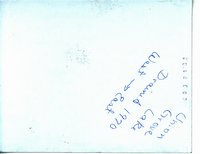 Union
Grove
Lake
Drained 1970
West → East